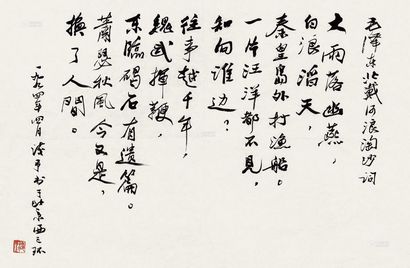 毛泽东北戴河浪淘沙词
大雨落幽燕，
白浪滔天，
秦皇岛外打渔船。
一片汪洋都不见，
知向谁边？
往事越千年，
魏武挥鞭，
东临碣石有遗篇。
萧瑟秋风今又是，
换了人间。
一九九四年四月